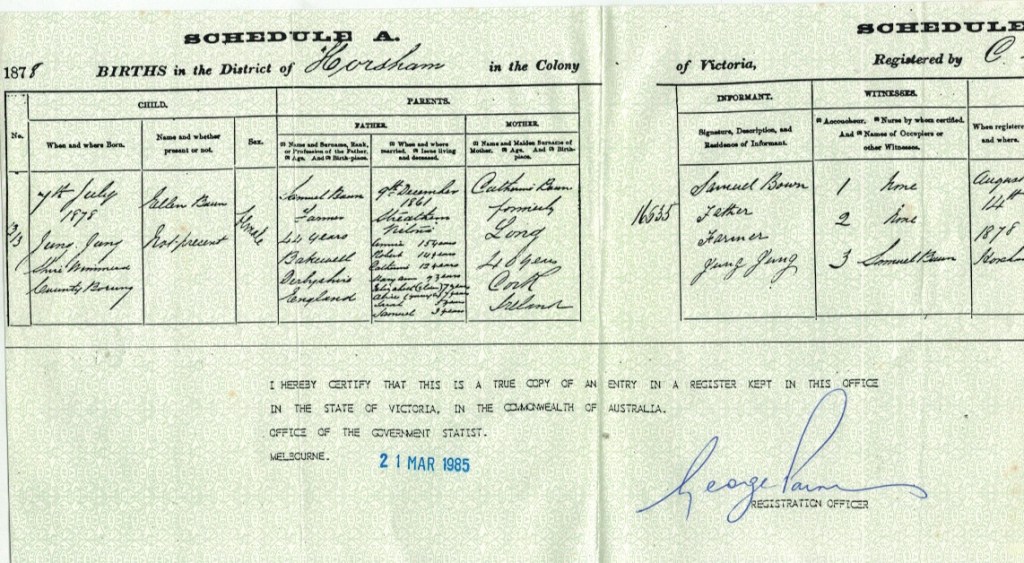 SCHEDULE A.
SCHEDULE
1878 BIRTHS in the District of Horsham in the Colony
of Victoria, Registered by C
CHILD.
PARENTS.
INFORMANT.
WITNESSES.
FATHER.
MOTHER.
No.
When and where Born.
Name and whether
present or not.
Sex.
(1) Name and Surname, Rank,
or Profession of the Father,
(2) Age. And (3) Birth-place.
(1) When and where
married. (2) Issue living
and deceased.
(1) Name and Maiden Surname of
Mother. (2) Age. And (3) Birth-
place.
Signature, Description, and
Residence of Informant.
(1) Accoucheur. (2) Nurse by whom certified.
And (3) Names of Occupiers or
other Witnesses.
When registere
and where.
7th July
1878
Jung Jung
County Borung
Ellen Bown
Not present
Female
Samuel Bown
Farmer
44 years
Bakewell
Derbyshire
England
9th December
1861
Streatham
Annie 15 years
Robert 14 years
Catherine 12 years
Mary Ann 9 years
Samuel 3 years
Catherine Bown
formerly
Long
40 years
Cork
Ireland
16635
Samuel Bown
Father
Farmer
Jung Jung
1 None
2 None
3 Samuel Bown
August
14th
1878
Horsha
I HEREBY CERTIFY THAT THIS IS A TRUE COPY OF AN ENTRY IN A REGISTER KEPT IN THIS OFFICE
IN THE STATE OF VICTORIA, IN THE COMMONWEALTH OF AUSTRALIA.
OFFICE OF THE GOVERNMENT STATIST.
MELBOURNE. 21 MAR 1985
George
REGISTRATION OFFICER